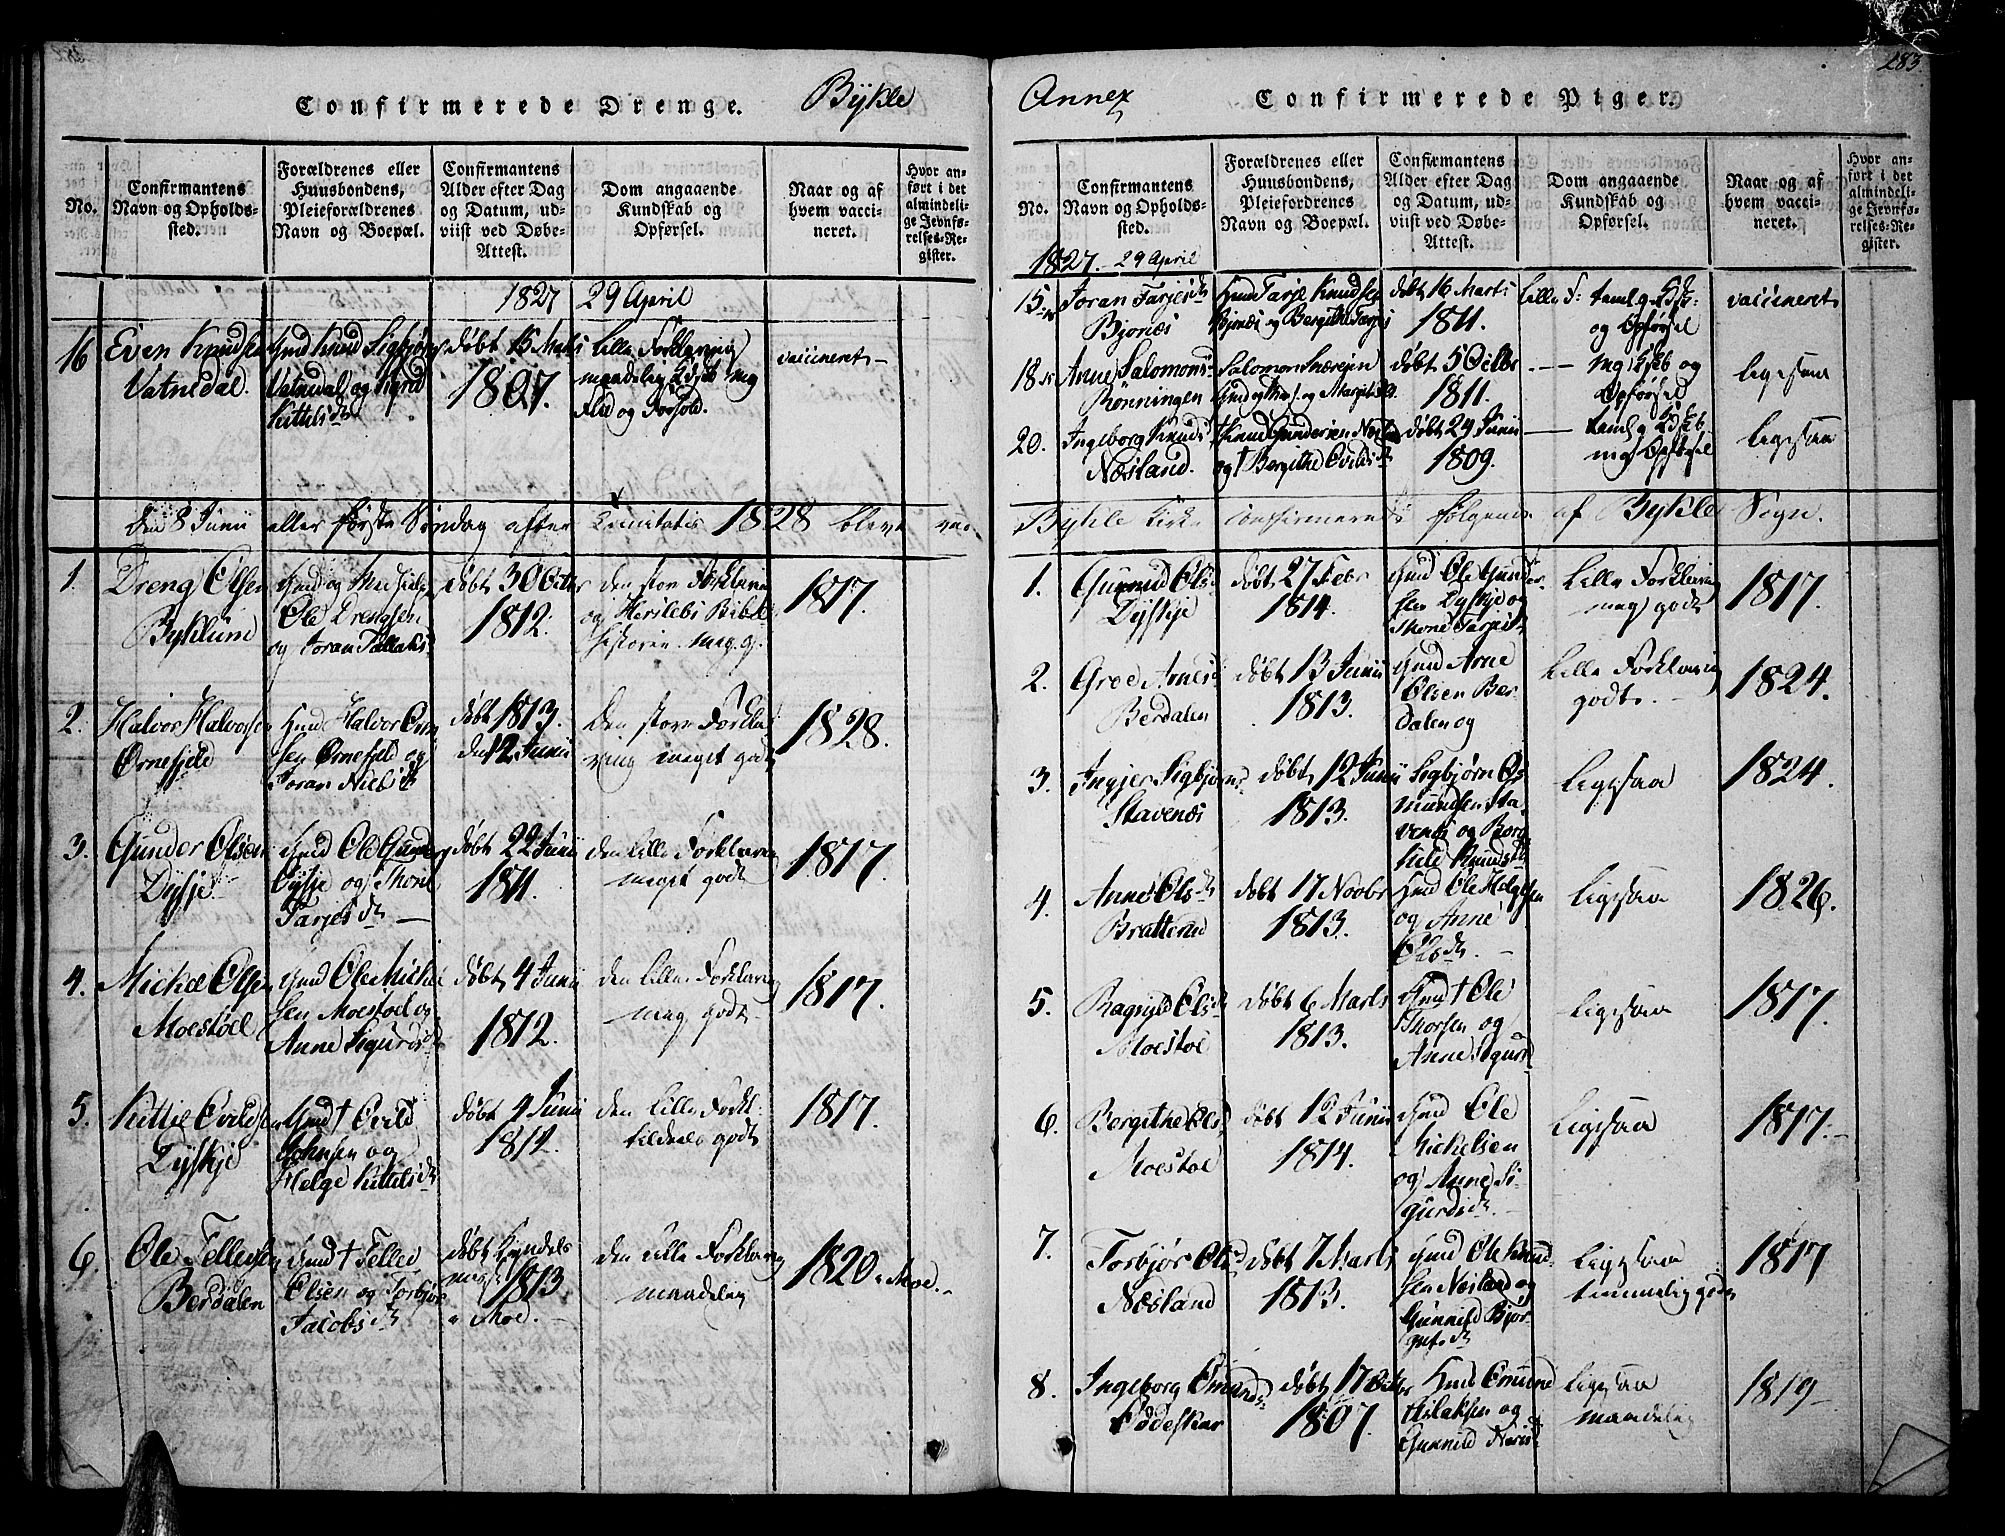 283
Confirmerede Drenge. Bykle
No.
Confirmantens Navn og Opholds-sted.
Forældrenes eller Huusbondens, Pleieforældrenes Navn og Boepæl.
Confirmantens Alder efter Dag og Datum, ud-viist ved Døbe-Attest.
Dom angaaende Kundskab og Opførsel.
Naar og af hvem vacci-neret.
Hvor an-ført i det almindeli-ge Jevnfø-relses-Re-gister.
1827 29 April
16 Even Knudsen
Vatnedal
Gmd Knud Sigbjørns
Vatnedal og Sigrid
Kittelsdtr
døbt 15 Marts
1807.
Lille Forklaring
maadelig Kdsk mg
Flid og Forhold.
vaccineret
Den 8 Junii eller første Søndag efter Trinitatis 1828 bleve ved
1. Dreng Olsen
Byklum
Gmd og
Ole Drengsen
og Joran Tallaksd
døbt 30 Octbr
1812.
den store Forklaring
og Herslebs Bibel
historie. meg. g.
1817.
2. Halvor Halvorsen
Ørnefjeld
Gmd Halvor
sen Ørnefjeld og
Joran Nielsdt
døbt 1813.
den 12 Junii
Den store Forkla
ring meget godt
1828.
3. Gunder Olsen
Dysje
Gmd Ole Gunders
Dysje og Thone
Tarjeisdtr
døbt 22 Junii
1811.
den Lille Forklaring
meget godt
1817.
4. Mickel Olsen
Moestøel
Gmd Ole Mickel
sen Moestøel og
Anne Sigurdsdtr
døbt 4 Junii
1812.
den Lille Forklaring
meg godt
1817.
5. Kittil Evilds
Dyskje
Gmd † Evild
Johnsen og
Helge Kittelsdtr
døbt 4 Junii
1812.
den Lille Forkl.
tildeels godt
1817.
6. Ole Tellefsen
Berdalen
Gmd † Tellev
Olsen og Torbjør
Jacobsdtr
døbt Kyndels
mess 1813
i Moe.
den Lille Forklaring
maadelig
1820 i Moe.
Annex Confirmerede Piger.
No.
Confirmantens Navn og Opholds-sted.
Forældrenes eller Huusbondens, Pleiefordrenes Navn og Boepæl.
Confirmantens Alder efter Dag og Datum, ud-viist ved Døbe-Attest.
Dom angaaende Kundskab og Opførsel.
Naar og af hvem vacci-neret.
Hvor an-ført i det almindeli-ge Jevnfø-relses-Re-gister.
1827. 29 April
15. Joran Tarjeisdt
Bjonæs
Gmd Tarje Knudsen
Bjonæs og Bergithe Tarjeis
døbt 16 Marts
1811.
Lille F: taml. g. Kdsk.
og Opførsel
vaccineret
18. Anne Salomons
Rønningen
Salomon
døbt 5 Octbr
1811.
mg Kdskb og
Opførsel
ligesaa
20. Ingeborg Knuds
Næsland.
Knud Gundersen Næsland
og † Bergithe Evilds
døbt 24 Junii
1809.
taml. g. Kdskb.
mg Opførsel
ligesaa
Bykle Kirke confirmerede følgende af Bykle Sogn.
1. Gunnild Olsd
Dyskje
døbt 27 Febr
1814.
Gmd Ole Gunder
sen Dyskje og
Thone Tarjeisd
Lille Forklaring
meg godt
1817.
2. Groe Arnesd
Berdalen
døbt 13 Junii
1813.
Gmd Arne
Olsen Ber
dalen og
Lille Forklaring
godt.
1824.
3. Ingjer Sigbjørns
Stavenæs
døbt 12 Junii
1813.
Sigbjørn Os
mundsen Sta
venæs og Borg
hild Knudsdt
ligesaa
1824.
4. Anne Olsdtr
Bratterud
døbt 17 Novbr
1813.
Gmd Ole Helgesen
og Anne
Olsdtr.
ligesaa
1826.
5. Ragnild Olsdt
Moestøe
døbt 6 Marts
1813.
Gmd † Ole
Thorsen og
Anne Sigurd
ligesaa
1817.
6. Bergithe Ols
Moestøe
døbt 12 Junii
1814.
Gmd Ole
Mickelsen
og Anne Si
gurdsdt
ligesaa
1817.
7. Torbjør Olsd
Næsland
døbt 7 Marts
1813.
Gmd Ole Knud
sen Næsland og
Gunnild Bjør
gufsdt
ligesaa
temmelig godt
1817
8. Ingeborg Omunds
Oddeskar
døbt 17 Octbr
1807.
Gmd Omund
Aslaksen og
Gunnild
ligesaa
maadelig
1819